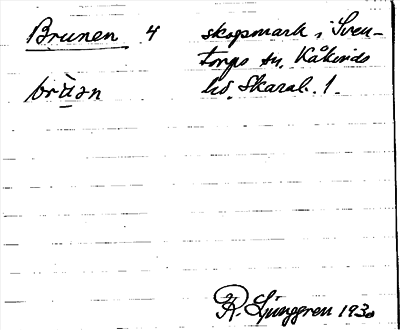 Brunen 4 skogsmark i Sven-
torps sn. Kåkinds
brùən hd. Skarab. l.
R. Ljunggren 1930